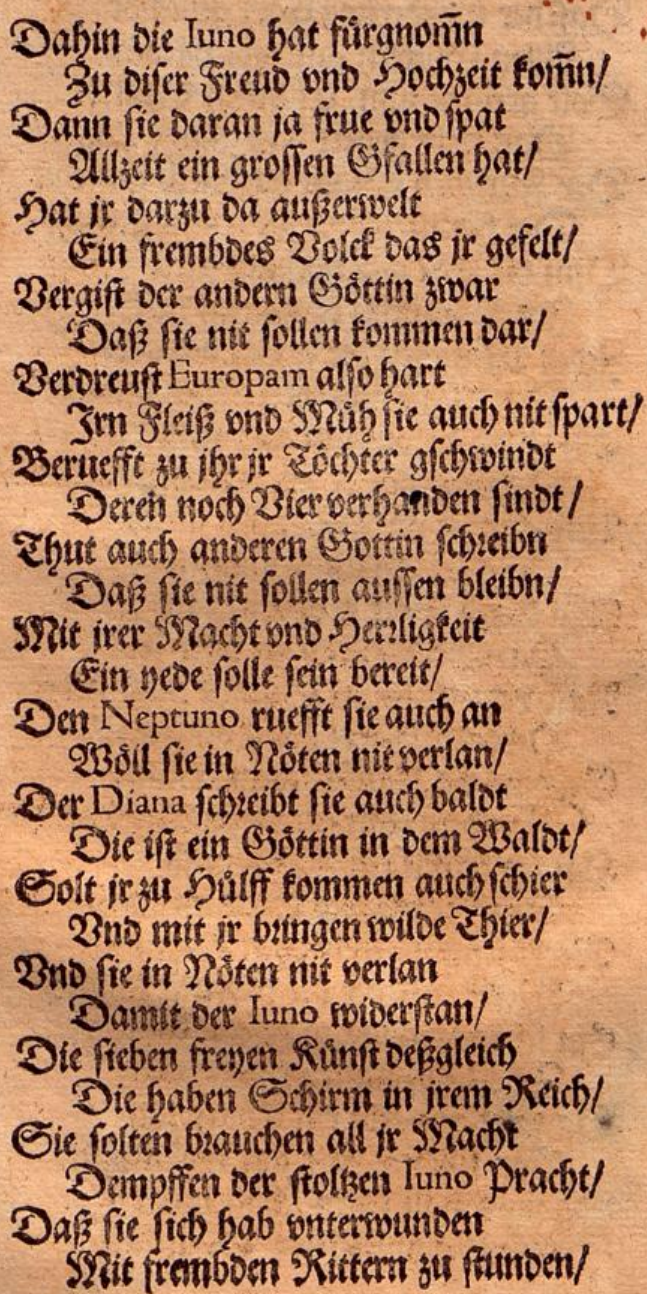 Dahin die Iuno hat fürgnom̄n
Zu diser Freud vnd Hochzeit kom̄n/
Dann sie daran ja frue vnd spat
Allzeit ein grossen Gfallen hat/
Hat jr darzu da außerwelt
Ein frembdes Volck das jr gefelt/
Vergist der andern Göttin zwar
Daß sie nit sollen kommen dar/
Verdreust Europam also hart
Irn Fleiß vnd Müh sie auch nit spart/
Beruefft zu jhr jr Töchter gschwindt
Deren noch Vier verhanden sindt/
Thut auch anderen Gottin schreibn
Daß sie nit sollen aussen bleibn/
Mit jrer Macht vnd Herrligkeit
Ein yede solle sein bereit/
Den Neptuno ruefft sie auch an
Wöll sie in Nöten nit verlan/
Der Diana schreibt sie auch baldt
Die ist ein Göttin in dem Waldt/
Solt jr zu Hülff kommen auch schier
Vnd mit jr bringen wilde Thier/
Vnd sie in Nöten nit verlan
Damit der Iuno widerstan/
Die sieben freyen Künst deßgleich
Die haben Schirm in jrem Reich/
Sie solten brauchen all jr Macht
Dempffen der stoltzen Iuno Pracht/
Daß sie sich hab vnterwunden
Mit frembden Rittern zu stunden/